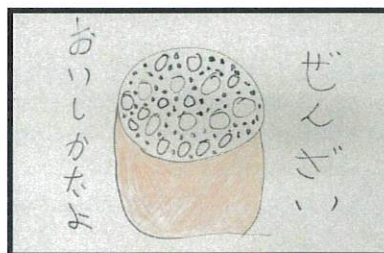 ぜんざい
おいしかたよ